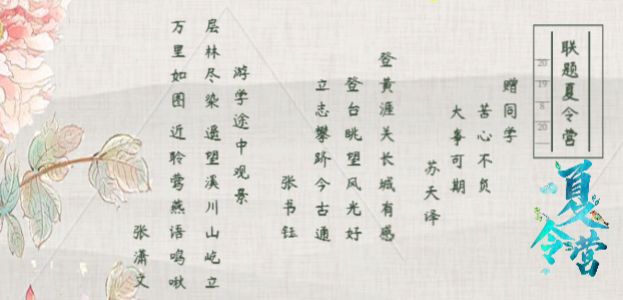 联题夏令营
20
19
8
20
夏
令
营
赠同学
苦心不负
大事可期
苏天译
登黄涯关长城有感
登台眺望风光好
立志攀跻今古通
张书钰
游学途中观景
层林尽染 遥望溪川山屹立
万里如图 近聆莺燕语鸣啾
张潇文